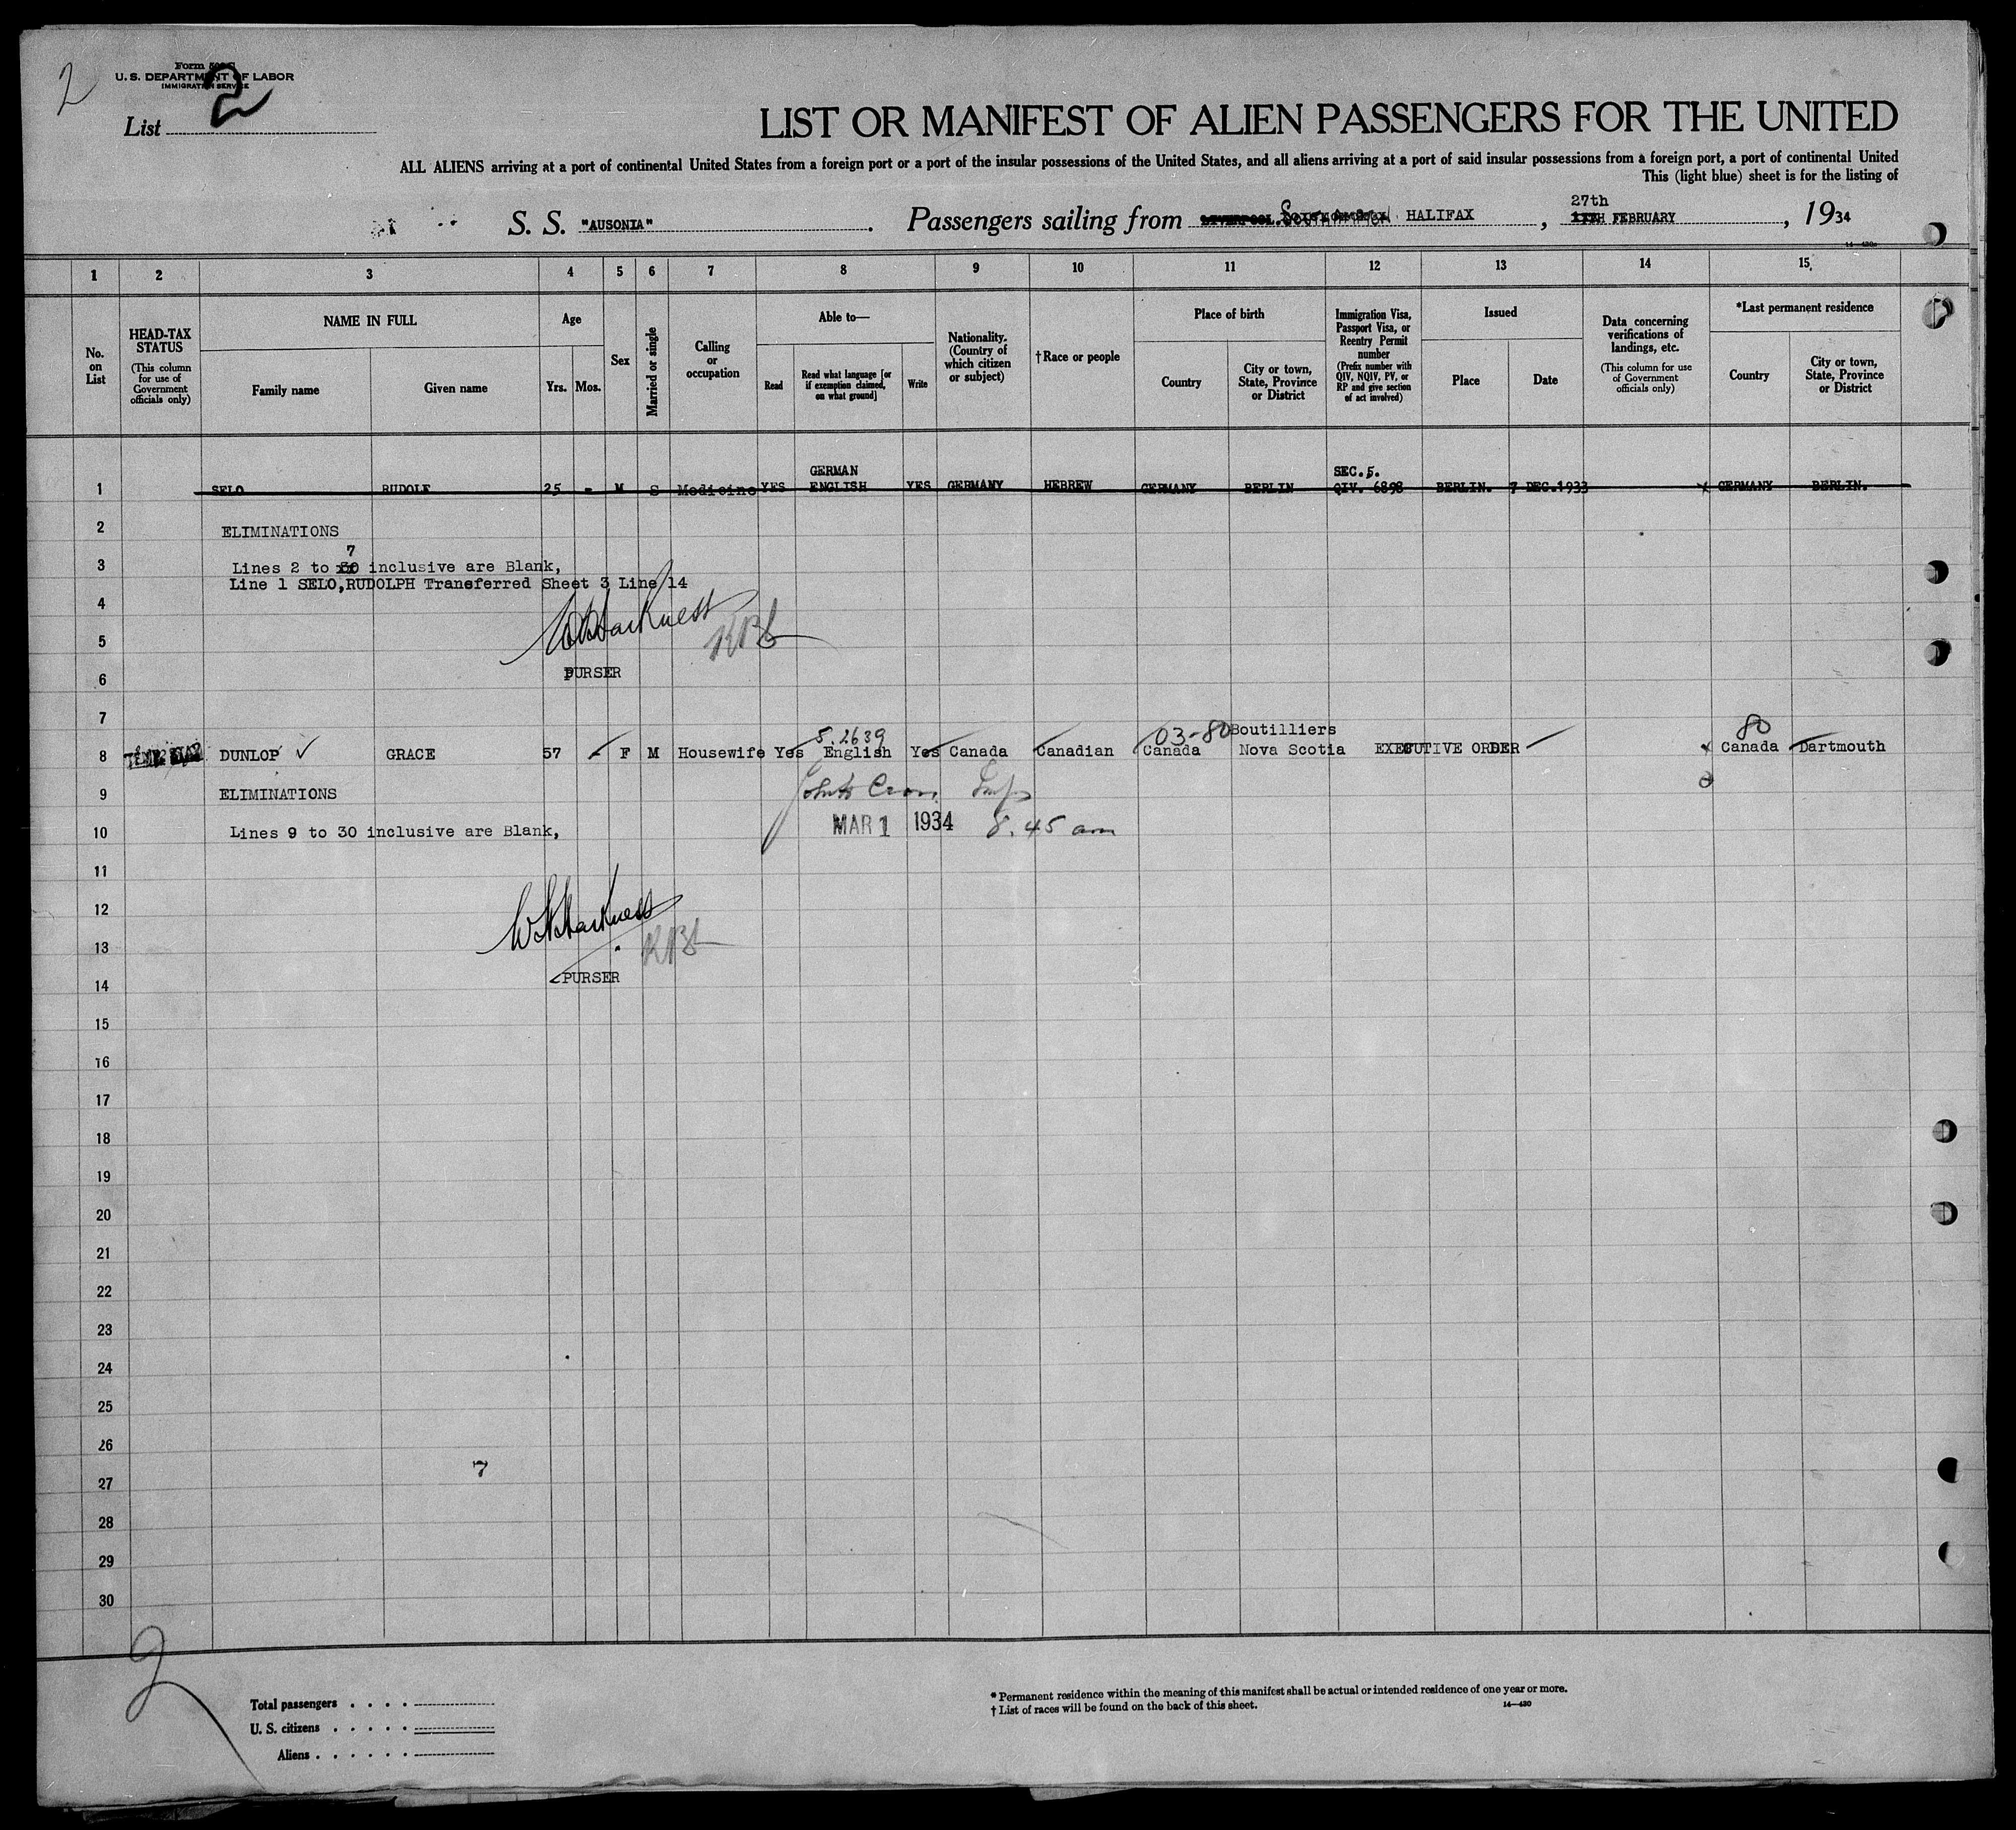 2
Form 500
U. S. DEPARTMENT OF LABOR
IMMIGRATION SERVICE
List 2
LIST OR MANIFEST OF ALIEN PASSENGERS FOR THE UNITED
ALL ALIENS arriving at a port of continental United States from a foreign port or a port of the insular possessions of the United States, and all aliens arriving at a port of said insular possessions from a foreign port, a port of continental United
This (light blue) sheet is for the listing of
27th
S. S. "AUSONIA". Passengers sailing from LIVERPOOL. HALIFAX, FEBRUARY, 1934
14—430
1 2 3 4 5 6 7 8 9 10 11 12 13 14 15
No. on List
HEAD-TAX STATUS
(This column for use of Government officials only)
NAME IN FULL
Family name
Given name
Age
Yrs. Mos.
Sex
Married or single
Calling or occupation
Able to—
Read
Read what language [or if exemption claimed, on what ground]
Write
Nationality. (Country of which citizen or subject)
†Race or people
Place of birth
Country
City or town, State, Province or District
Immigration Visa, Passport Visa, or Reentry Permit number
(Prefix number with QIV, NQIV, PV, or RP and give section of act involved)
Issued
Place
Date
Data concerning verifications of landings, etc.
(This column for use of Government officials only)
*Last permanent residence
Country
City or town, State, Province or District
GERMAN SEC. 5.
1 SELO RUDOLF 25 - M S Medicine YES ENGLISH YES GERMANY HEBREW GERMANY BERLIN QIV. 6898 BERLIN. 7 DEC.1933 x GERMANY BERLIN.
2 ELIMINATIONS
7
3 Lines 2 to 30 inclusive are Blank,
Line 1 SELO,RUDOLPH Transferred Sheet 3 Line 14
4
5 W Harkness KBL
6 PURSER
7
5.2639 03-80 Boutilliers 80
8 DUNLOP ✓ GRACE 57 - F M Housewife Yes English Yes Canada Canadian Canada Nova Scotia EXECUTIVE ORDER x Canada Dartmouth
9 ELIMINATIONS
10 Lines 9 to 30 inclusive are Blank, MAR 1 1934 8.45 am
11
12 W Harkness
13 KBL
14 PURSER
15
16
17
18
19
20
21
22
23
24
25
26
7
27
28
29
30
2
Total passengers . . . .
U. S. citizens . . . . .
Aliens . . . . . .
* Permanent residence within the meaning of this manifest shall be actual or intended residence of one year or more.
† List of races will be found on the back of this sheet. 14—430